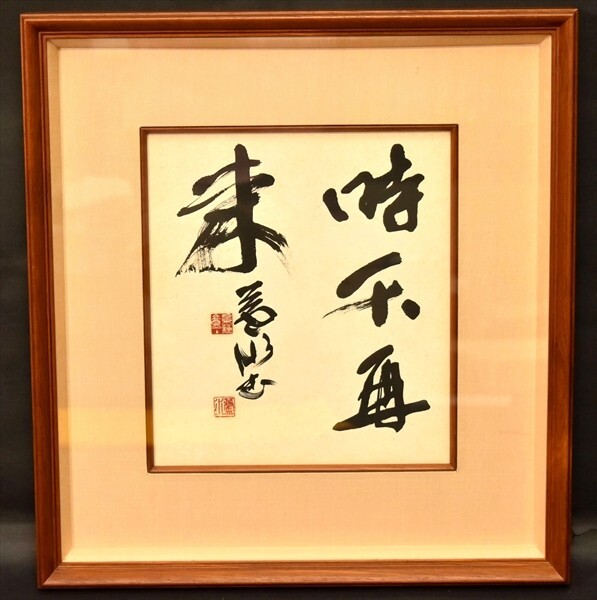 時不再
来